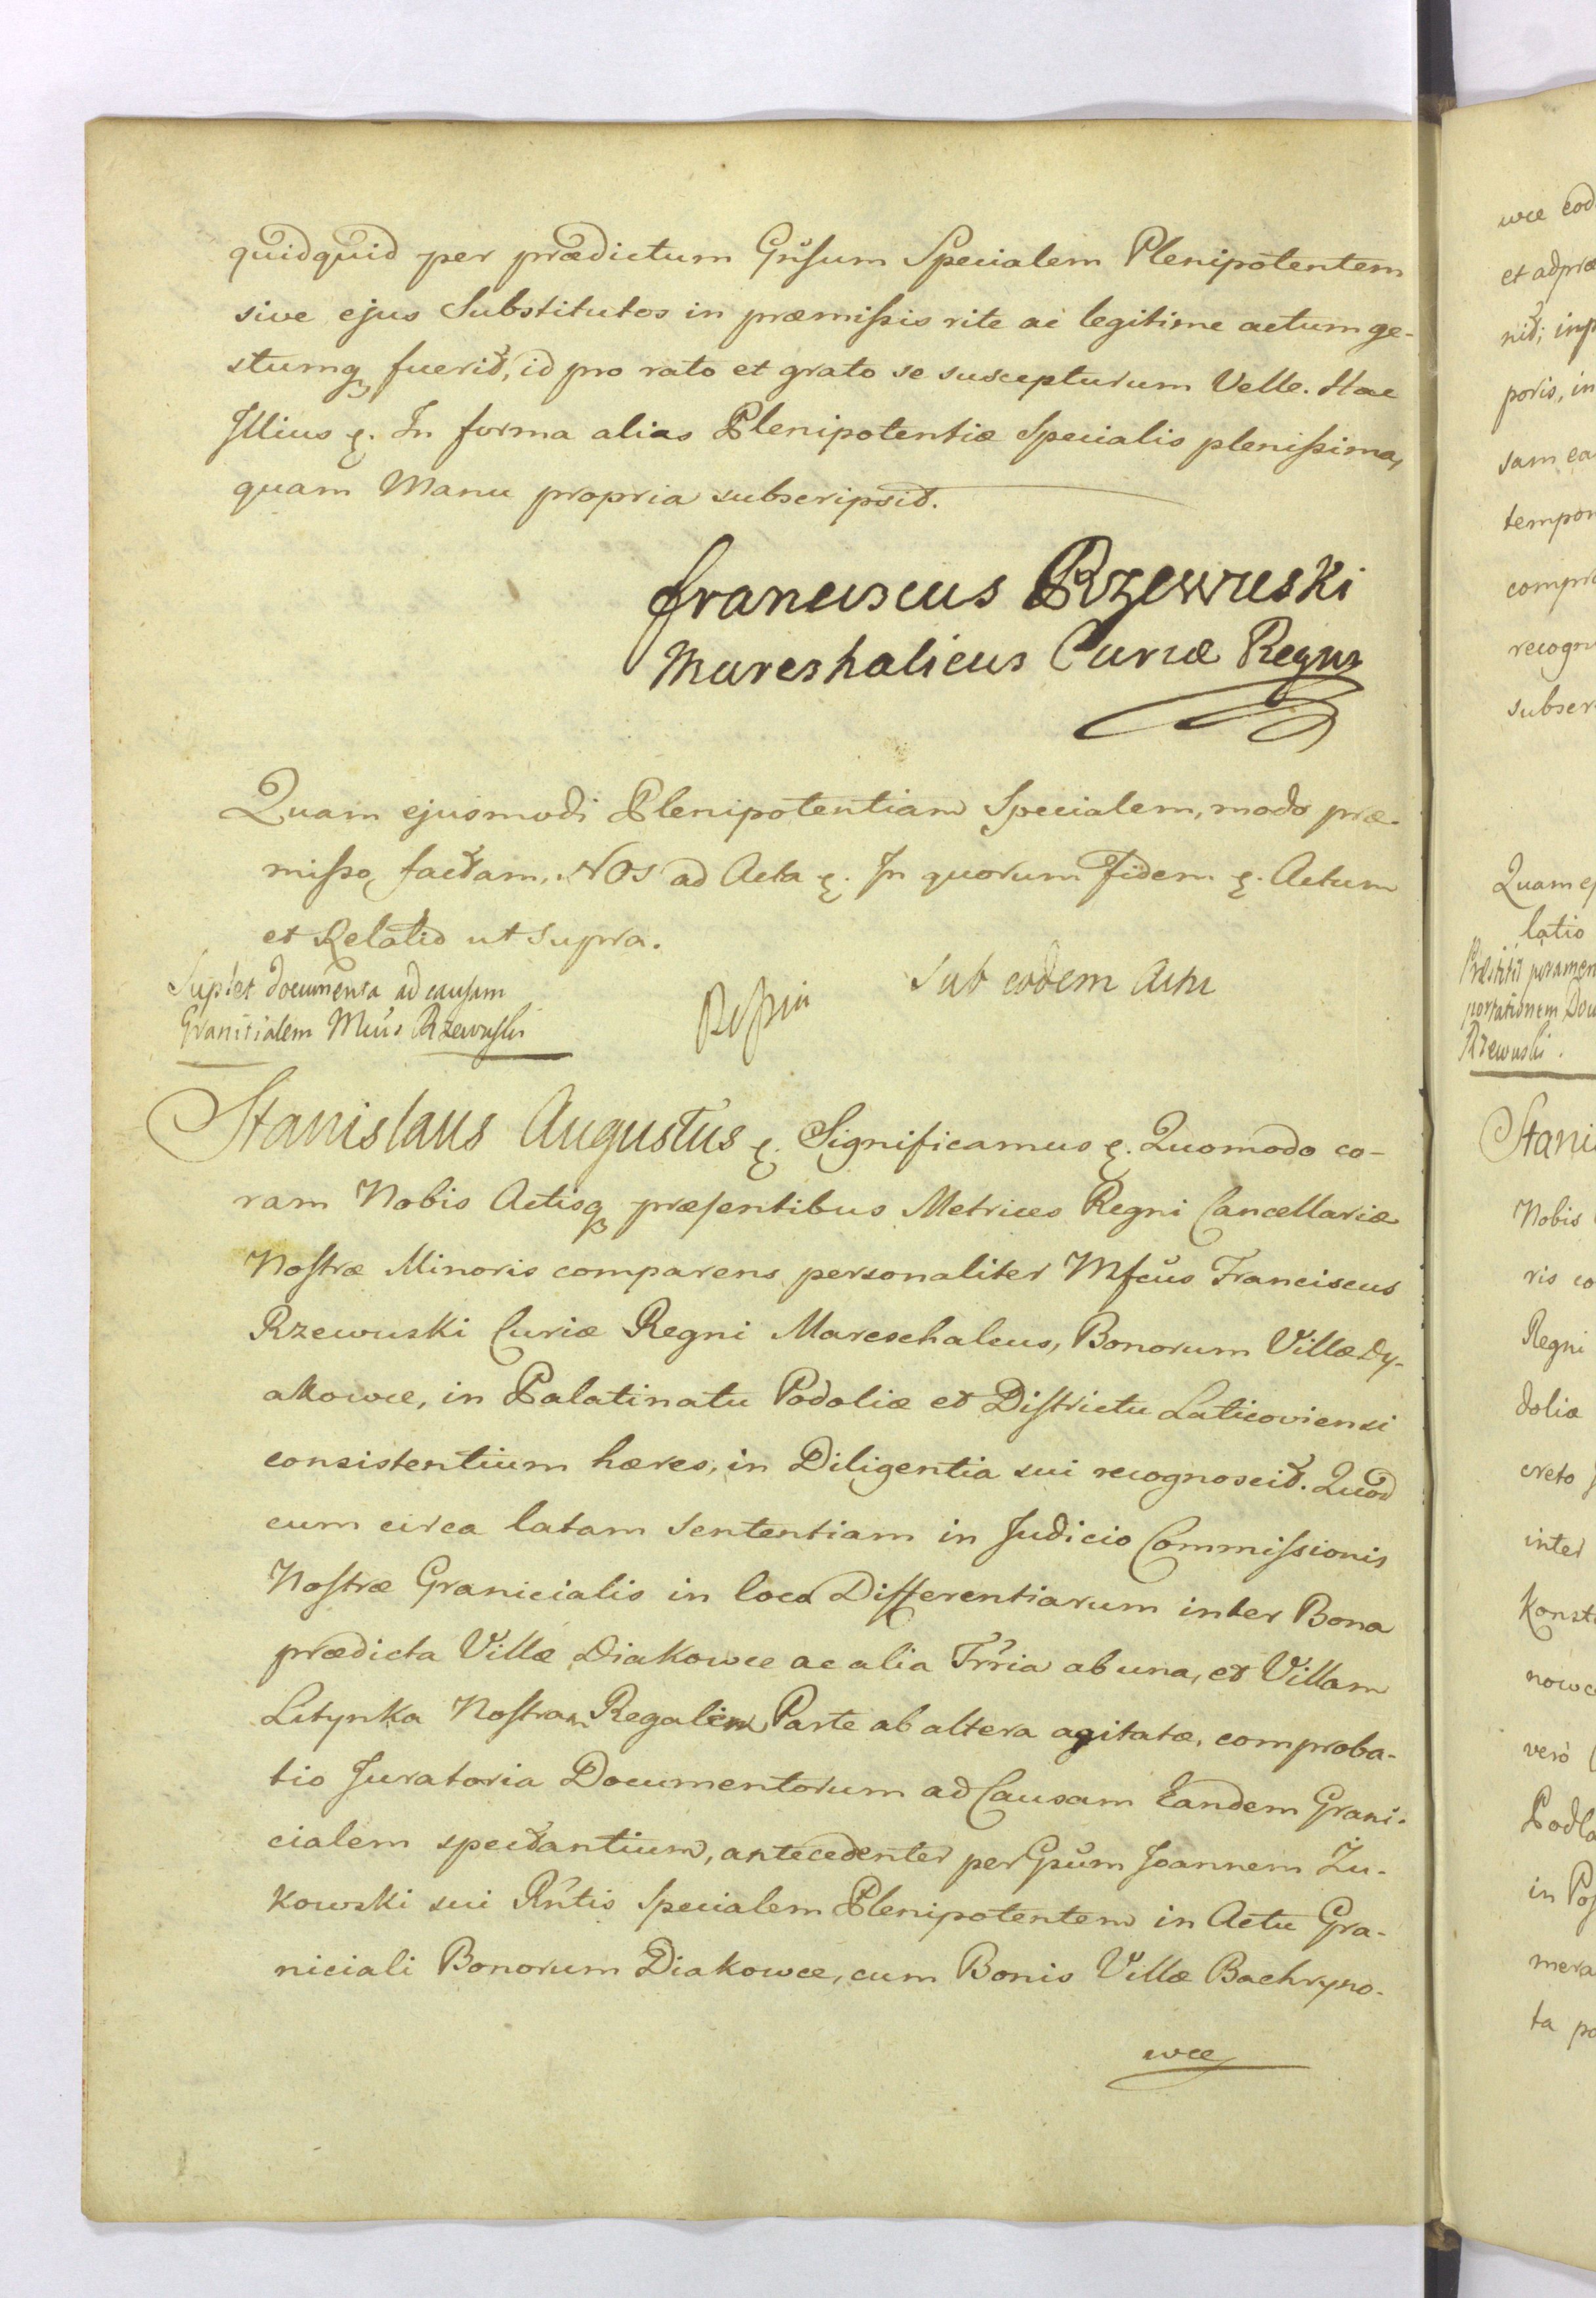 quidquid per prædictum Gñsum Specialem Plenipotentem
sive ejus Substitutos in præmißis rite ac legitime actum ge-
stumq fuerit, id pro rato et grato se suscepturum Velle. Hac
Illius &. In forma alias Plenipotentiæ Specialis plenißima,
quam Manu propria subscripsit.
franciscus Rzewuski
Mareshalicus Curiæ Regni
Quam ejusmodi Plenipotentiam Specialem, modo præ-
mißo factam, NOS ad Acta &. In quorum Fidem &. Actum
et Relatio ut supra.
Suplet documenta ad causam
Granitialem Mcus Rzewuski
Sub eodem Actu
Stanislaus Augustus &. Significamus &. Quomodo co-
ram Nobis Actisq præsentibus Metrices Regni Cancellariæ
Nostræ Minoris comparens personaliter Mfcus Franciscus
Rzewuski Curiæ Regni Mareschalcus, Bonorum Villæ Dy-
akowce, in Palatinatu Podoliæ et Districtu Laticoviensi
consistentium hæres, in Diligentia sui recognoscit. Quod
cum circa latam Sententiam in Judicio Commissionis
Nostræ Granicialis in loco Differentiarum inter Bona
prædicta Villæ Diakowce ac alia Trria ab una, et Villam
Litynka Nostram Regalem Parte ab altera agitatæ, comproba-
tio Juratoria Documentorum ad Causam Eandem Grani-
cialem spectantium, antecedenter per Gsum Joannem Żu-
kowski sui Rntis Specialem Plenipotentem in Actu Gra-
niciali Bonorum Diakowce, cum Bonis Villæ Bachryno-
wce
wce eod
et ad præ
nit; imp
poris, in
sam ea
tempor
compro
recogn
subscr
Quam ej
latio
Præstitit juramen
portationem Docu
Rzewuski.
Stani
Nobis
ris co
Regni
doliæ
creto
inter
Konst
nowc
vero
Podla
in Pos
mera
ta po